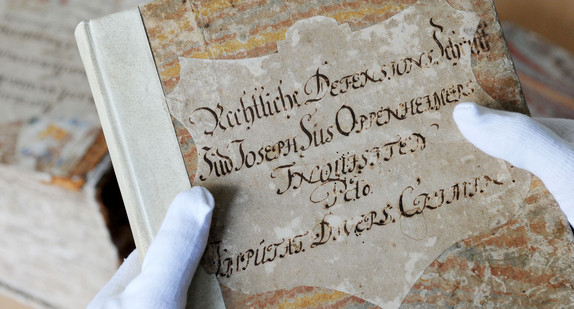 Rechtliche Defensions Schrifft
Jüd Joseph Süs Oppenheimers
Inquisited
Pcto
Imputat. Divers. Crimin.